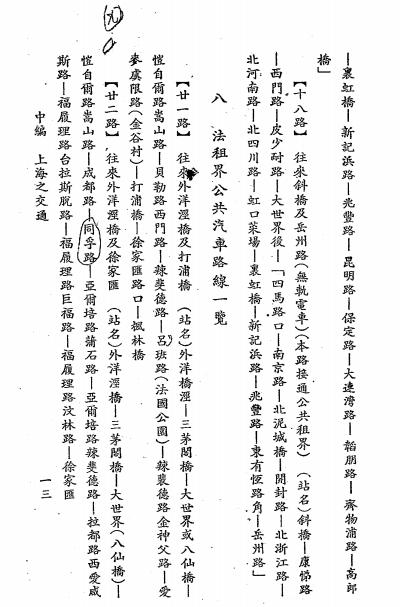 —裏虹橋—新記浜路—兆豐路—昆明路—保定路—大連灣路—韜朋路—齊物浦路—高郎
橋」
【十八路】 往來斜橋及岳州路(無軌電車)(本路接通公共租界) (站名)斜橋—康悌路
—西門路—皮少耐路—大世界後—「四馬路口—南京路—北泥城橋—開封路—北浙江路—
北河南路—北四川路—虹口菜場—裏虹橋—新記浜路—兆豐路—東有恆路角—岳州路」
八 法租界公共汽車路線一覽
【廿一路】 往來外洋涇橋及打浦橋 (站名)外洋橋涇—三茅閣橋—大世界或八仙橋—
愷自爾路嵩山路—貝勒路西門路—辣斐德路—呂班路(法國公園)—辣裴德路金神父路—愛
麥虞限路(金谷村)—打浦橋—徐家匯路口—楓林橋
【廿二路】 往來外洋涇橋及徐家匯 (站名)外洋涇橋—三茅閣橋—大世界(八仙橋)—
愷自爾路嵩山路—成都路—同孚路—亞爾培路蒲石路—亞爾培路辣斐德路—拉都路西愛咸
斯路—福履理路台拉斯脫路—福履理路巨福路—福履理路汶林路—徐家匯
中編 上海之交通
一三